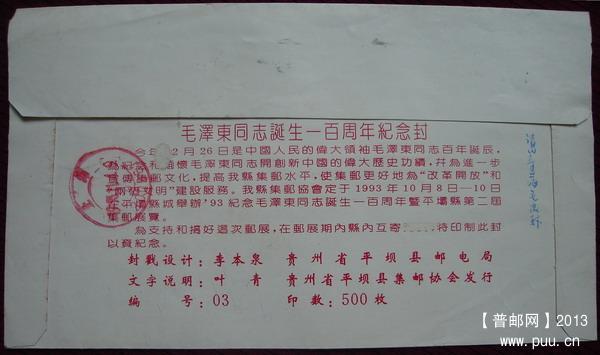 毛澤東同志誕生一百周年紀念封
今年 2月26日是中國人民的偉大領袖毛澤東同志百年誕辰，
為紀念和緬懷毛澤東同志開創新中國的偉大歷史功績，幷為進一步
集郵文化，提高我縣集郵水平，使集郵更好地為“改革開放”和
文明”建設服務。我縣集郵協會定于1993年10月8日—10
日 平壩縣城舉辦’93紀念毛澤東同志誕生一百周年暨平壩縣第二屆
集郵展覽。
為支持和搞好這次郵展，在郵展期內縣內互寄 特印制此封
以資紀念。
封戳设计：李本泉 贵州省平坝县邮电局
文字说明：叶青 贵州省平坝县集邮协会发行
编号：03 印数：500枚
【普邮网】2013
www.puu.cn